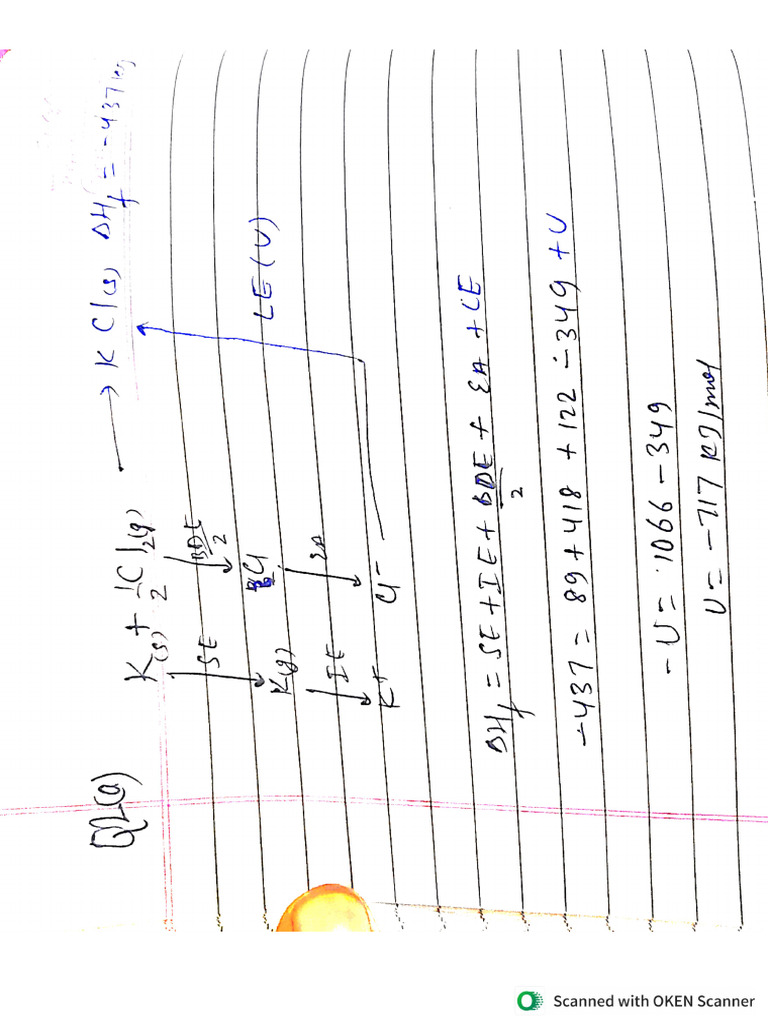 Q1(a) K(s) + 1/2 Cl2(g) → KCl(s) ΔHf = -437 kJ
SE BDE/2 LE(U)
K(g) Cl
IE EA
K+ Cl-
ΔHf = SE + IE + BDE/2 + EA + LE
-437 = 89 + 418 + 122 - 349 + U
-U = 1066 - 349
U = -717 KJ/mol
Scanned with OKEN Scanner